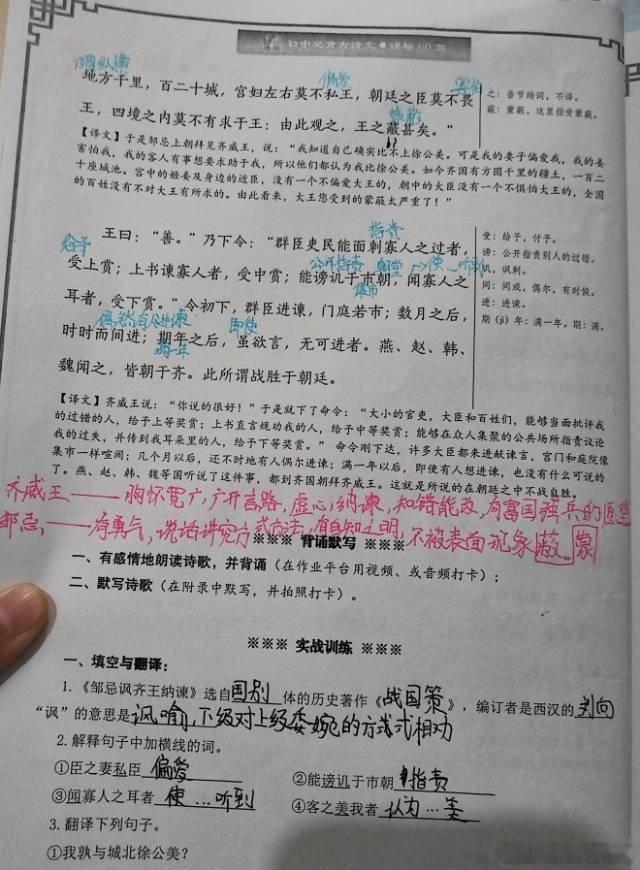 初中必背古诗文●课标60篇
偏爱
害怕
地方千里，百二十城，宫妇左右莫不私王，朝廷之臣莫不畏
王，四境之内莫不有求于王：由此观之，王之蔽甚矣。”
之：音节助词，不译。
蔽：蒙蔽。这里指受蒙蔽。
【译文】于是邹忌上朝拜见齐威王，说：“我知道自己确实比不上徐公美。可是我的妻子偏爱我，我的妾
害怕我，我的客人有事想要求助于我，所以他们都认为我比徐公美。如今齐国有方圆千里的疆土，一百二
十座城池。宫中的姬妾及身边的近臣，没有一个不偏爱大王的，朝中的大臣没有一个不惧怕大王的，全国
的百姓没有不对大王有所求的。由此看来，大王您受到的蒙蔽太严重了！”
指责
给予
王曰：“善。”乃下令：“群臣吏民能面刺寡人之过者，
公开指责
使…听到
受上赏；上书谏寡人者，受中赏；能谤讥于市朝，闻寡人之
耳者，受下赏。”令初下，群臣进谏，门庭若市；数月之后，
偶然有人进谏
即使
时时而间进；期年之后，虽欲言，无可进者。燕、赵、韩、
满一年
魏闻之，皆朝于齐。此所谓战胜于朝廷。
受：给予，付予。
谤：公开指责别人的过错。
讥，讽刺。
间：间或，偶尔，有时候。
进：进谏。
期（jī）年：满一年。期：满。
【译文】齐威王说：“你说的很好！”于是就下了命令：“大小的官吏，大臣和百姓们，能够当面批评我
的过错的人，给予上等奖赏；上书直言规劝我的人，给予中等奖赏；能够在众人集聚的公共场所指责议论
我的过失，并传到我耳朵里的人，给予下等奖赏。”命令刚下达，许多大臣都来进献谏言，宫门和庭院像
集市一样喧闹；几个月以后，还不时地有人偶尔进谏；满一年以后，即使有人想进谏，也没有什么可说的
了。燕、赵、韩、魏等国听说了这件事，都到齐国朝拜齐威王。这就是所说的在朝廷之中不战自胜。
齐威王——胸怀宽广，广开言路，虚心纳谏，知错能改，有富国强兵的愿望
邹忌——有勇气，说话讲究方式方法，有自知之明，不被表面现象蔽蒙
※※※ 背诵默写 ※※※
一、有感情地朗读诗歌，并背诵（在作业平台用视频、或音频打卡）；
二、默写诗歌（在附录中默写，并拍照打卡）。
※※※ 实战训练 ※※※
一、填空与翻译：
1.《邹忌讽齐王纳谏》选自国别体的历史著作《战国策》，编订者是西汉的刘向
“讽”的意思是讽喻，下级对上级委婉的方式式相劝
2.解释句子中加横线的词。
①臣之妻私臣 偏爱 ②能谤讥于市朝 指责
③闻寡人之耳者 使…听到 ④客之美我者 认为…美
3.翻译下列句子。
①我孰与城北徐公美？